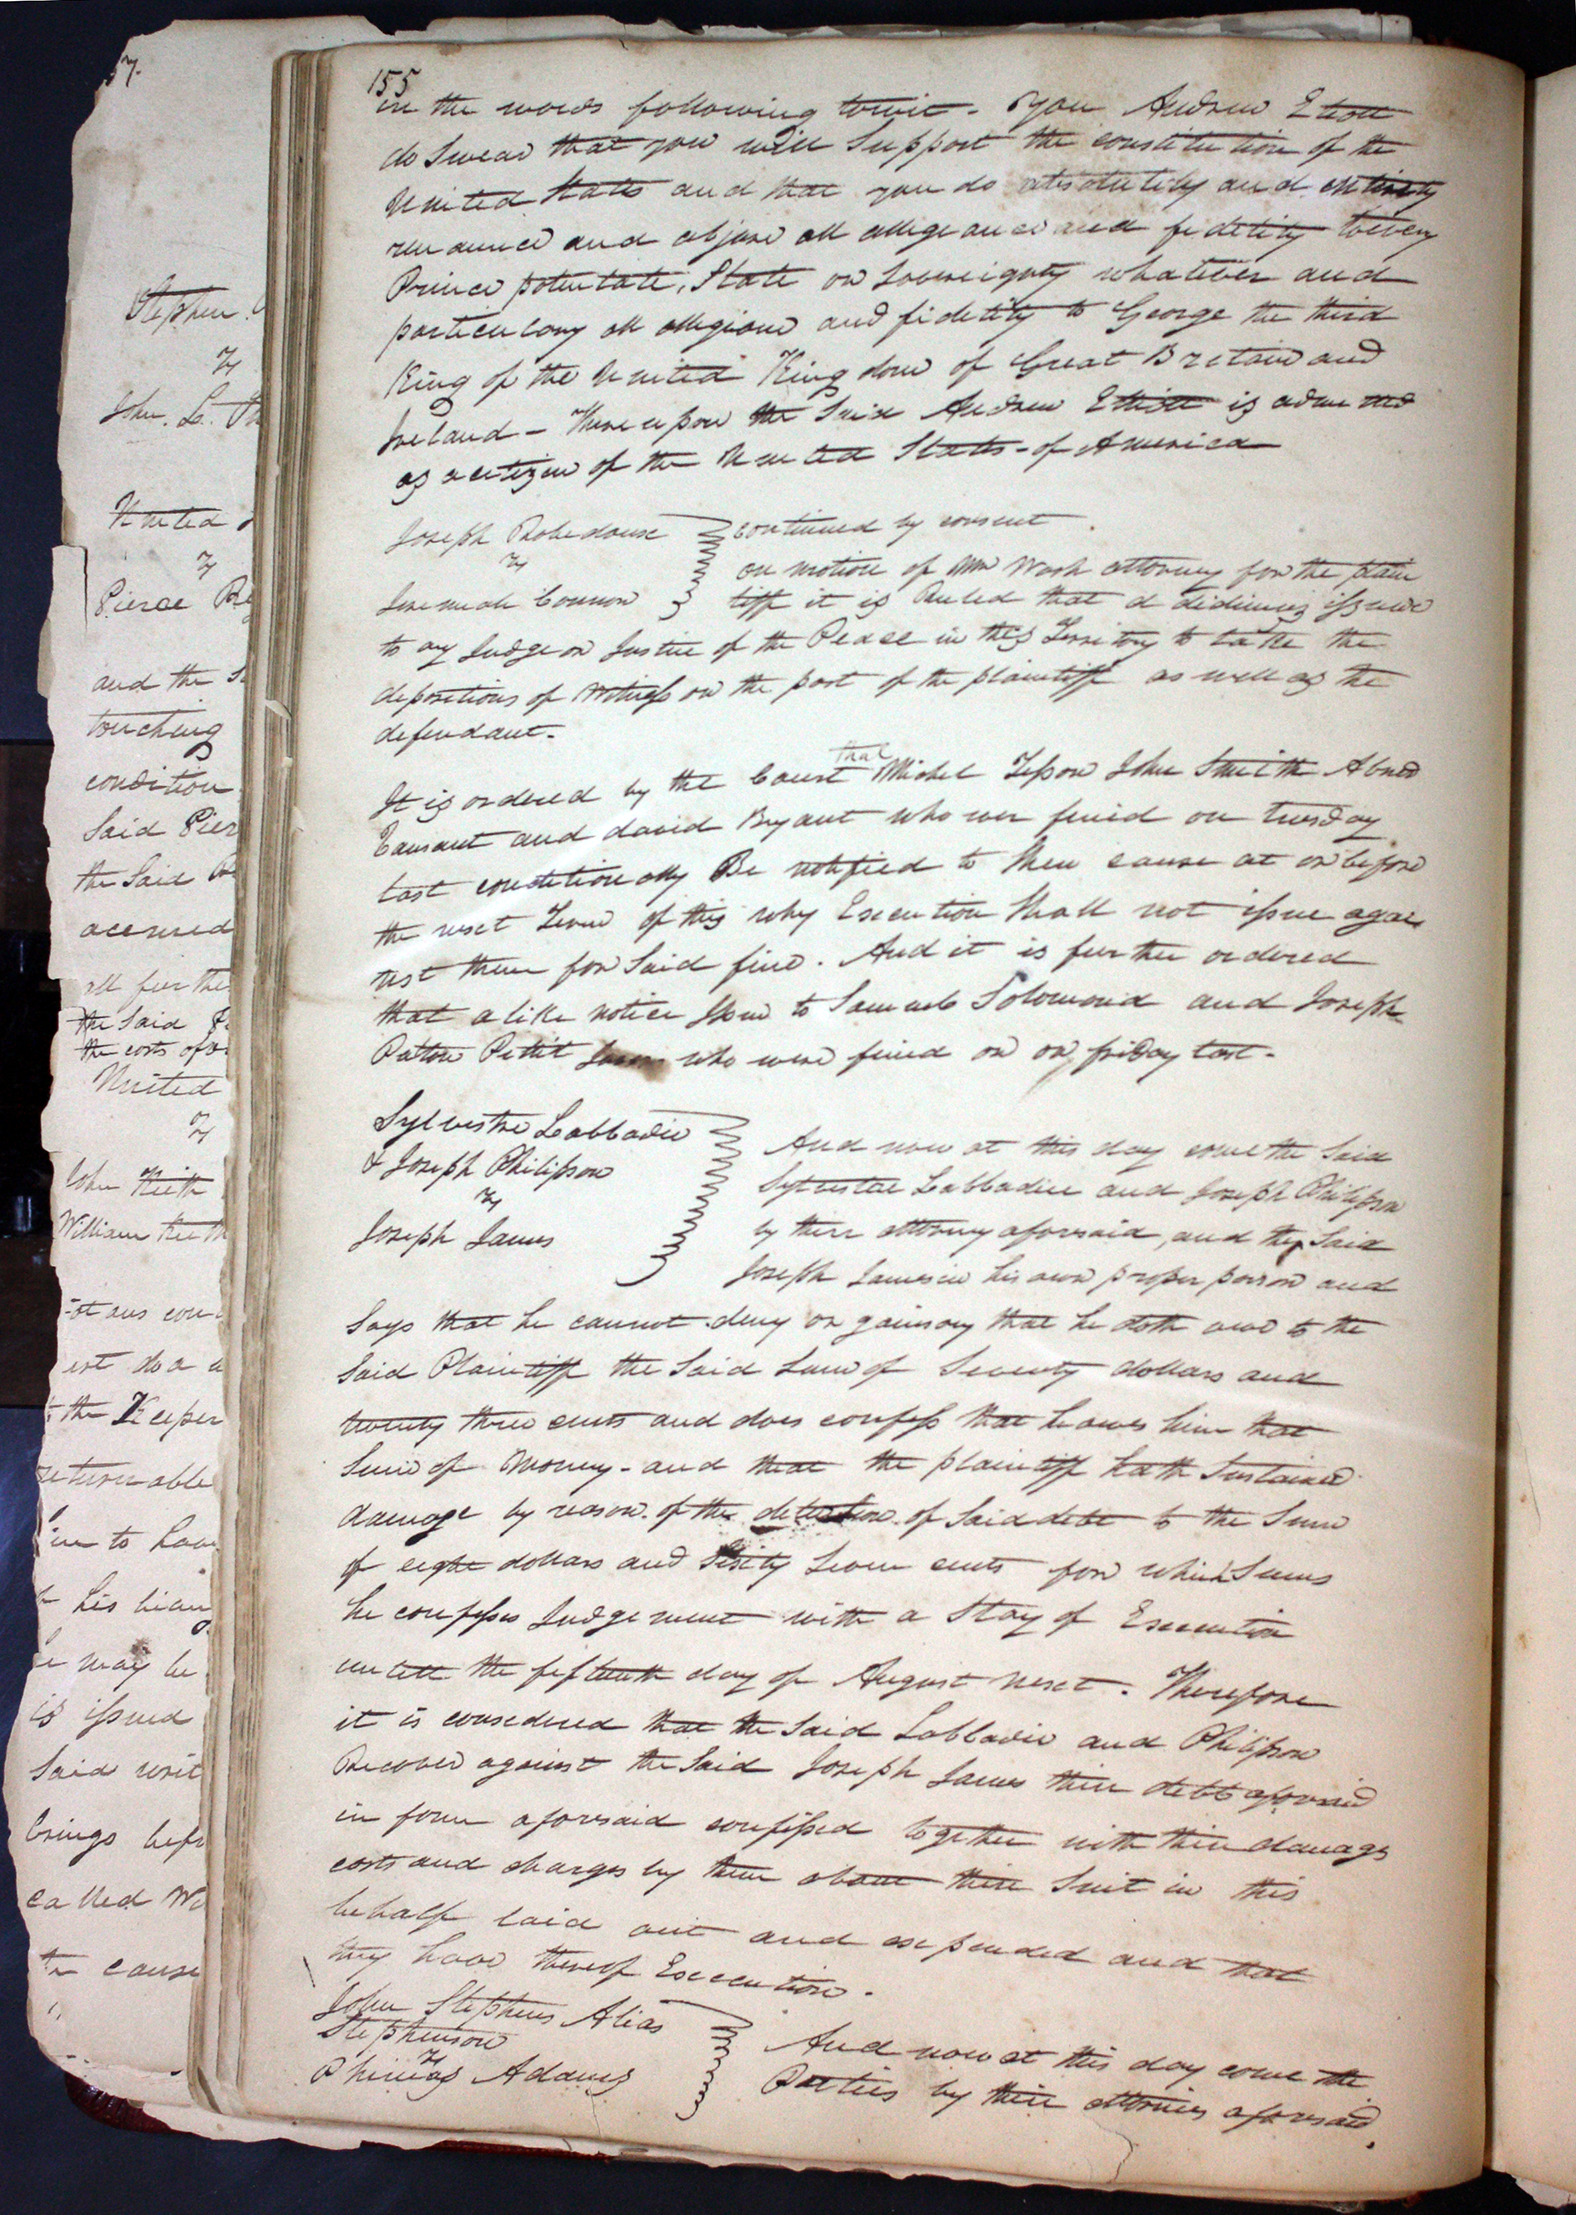 57.
Stephen
v
John. L.
United
v
Pierce
and the
touching
condition
Said Pier
the Said
accrued
all further
the Said
the costs of
United
v
John Keith
William Keith
est do a
to the Keeper
returnable
to have
his
may be
is issued
Said writ
brings befo
called
cause
155
in the words following towit - You Andrew Eliott
do Swear that you will Support the constitution of the
United States and that you do absolutily and entirely
renounce and abjure all allegeance and fidelity to every
Prince potentate, State or Sovereignty whatever and
particulary all allegiance and fidelity to George the third
King of the United Kingdom of Great Britain and
Ireland - Thereupon the Said Andrew Elliott is admitted
as a citizen of the United States - of America
Joseph Robedouse
v
Jeremiah Connor
continued by consent
on motion of Mr Wash attorney for the plain
tiff it is Ruled that a didimus issue
to any Judge or Justice of the Peace in this Territory to take the
depositions of Witness on the part of the plaintiff as well as the
defendant.
It is ordered by the Court that Michel Tesson John Smith Abner
and david Bryant who wer fined on tuesday
last conditionally Be notified to shew cause at or before
the next Term of this why Execution Shall not issue agai
nst them for Said fine. And it is further ordered
that a like notice issue to Samuel Solomond and Joseph
Patton Pettit who were fined on on friday last -
Sylvestre Labbadie
& Joseph Philipson
v
Joseph James
And now at this day come the Said
Sylvestre Labbadie and Joseph Philipson
by their attorney aforesaid, and the Said
Joseph James in his own proper person and
Says that he cannot deny or gainsay that he doth owe to the
Said Plaintiff the Said Sum of Seventy dollars and
twenty three cents and does confess that he owes him that
Sum of Money - and that the plaintiff hath Sustained
damage by reason of the detention of Said debt to the Sum
of eight dollars and Sixty Seven cents for which Sums
he confesses Judgement with a Stay of Execution
untill the fifteenth day of August next. Therefore
it is considered that the Said Labbadie and Philipson
Recover against the Said Joseph James their debt aforesaid
in form aforesaid confessed together with their damages
costs and charges by them about their Suit in this
behalf laid out and expended and that
they have thereof Execution.
John Stephens Alias
Stephenson
v
Phineas Adams
And now at this day come the
Parties by their attornies aforesaid